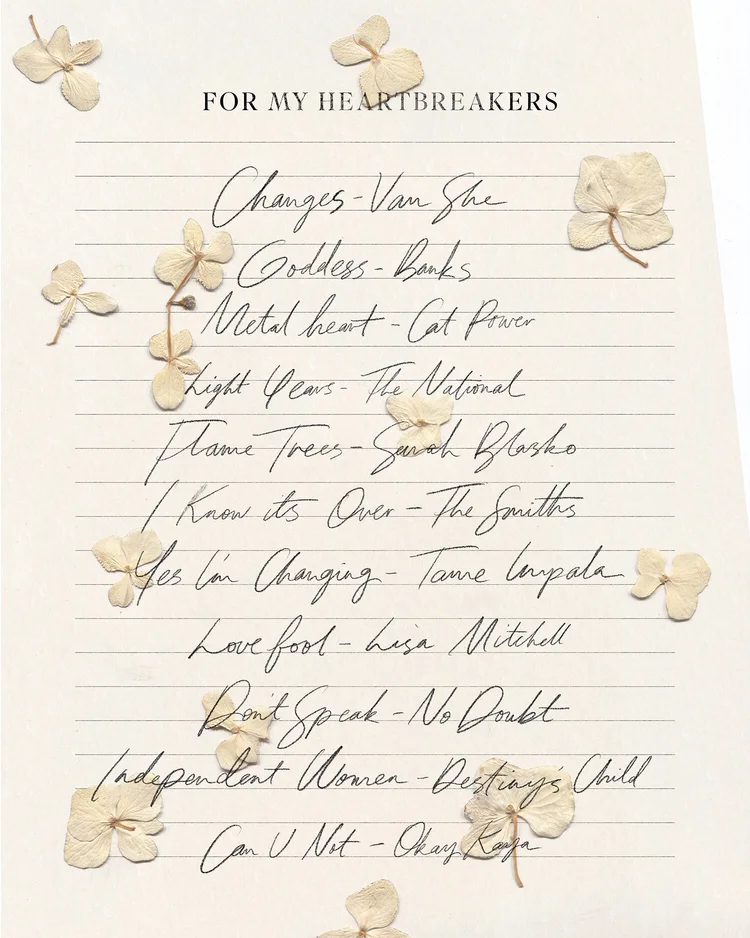 FOR MY HEARTBREAKERS
Changes - Van She
Goddess - Banks
Metal heart - Cat Power
Light Years - The National
Flame Trees - Sarah Blasko
I Know its Over - The Smiths
Yes I'm Changing - Tame Impala
Lovefool - Lisa Mitchell
Don't Speak - No Doubt
Independent Women - Destiny's Child
Can U Not - Okay Kaya